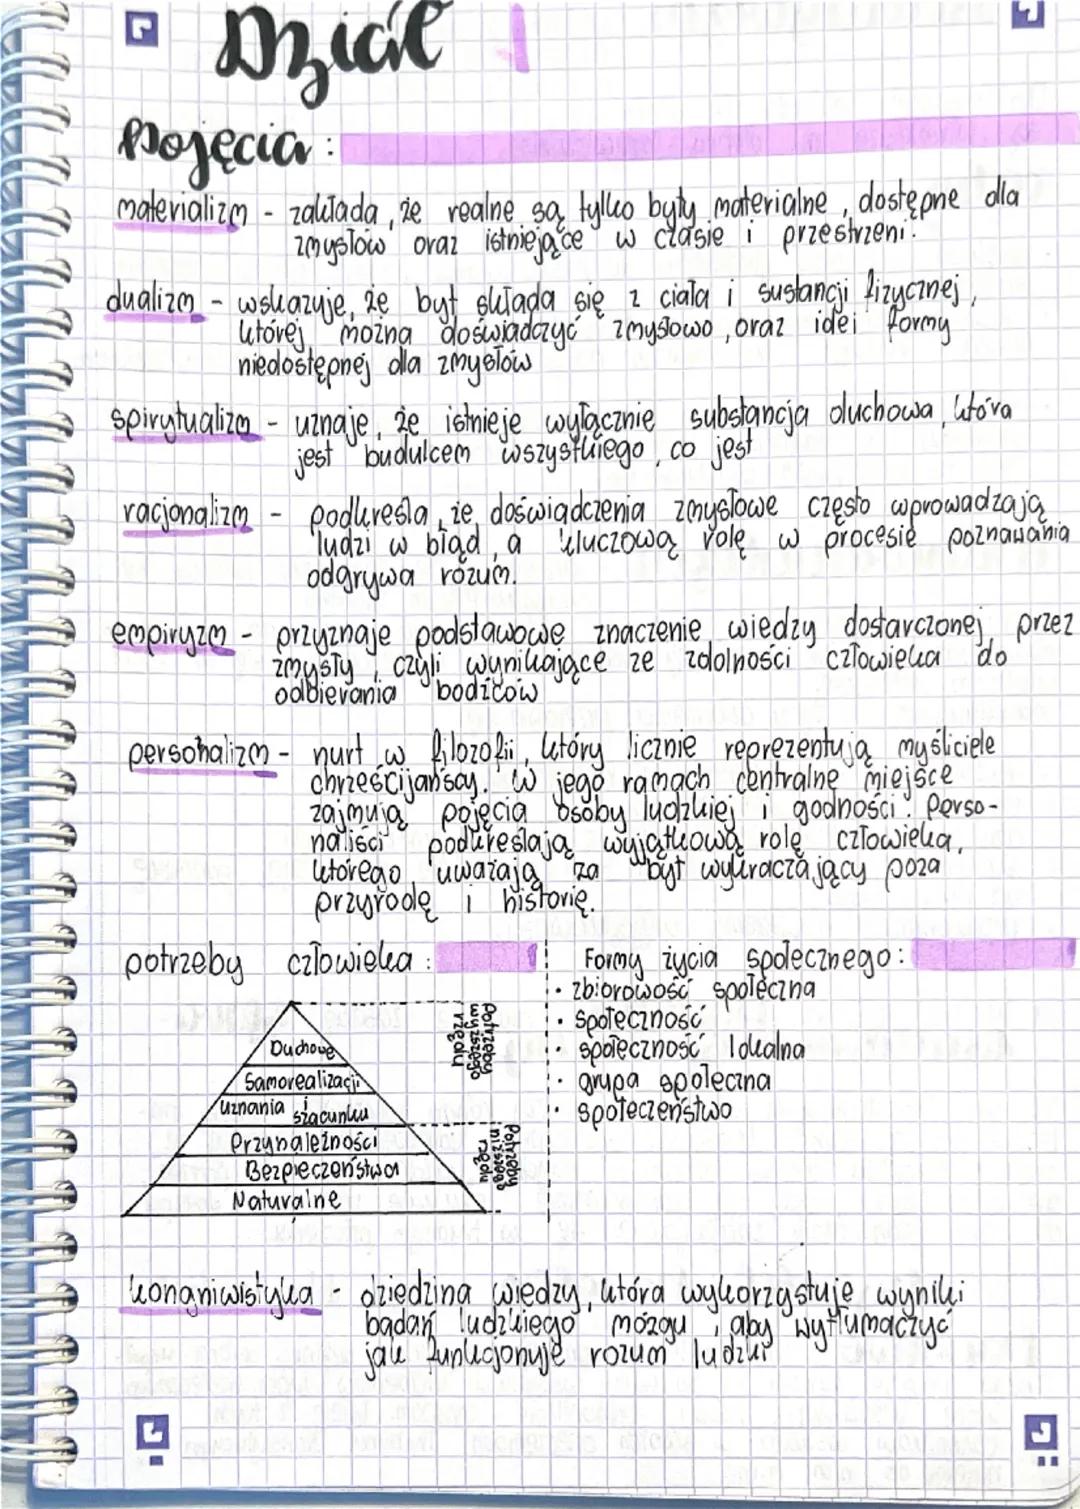 Dział 1
Pojęcia:
materializm - zakłada, że realne są tylko byty materialne, dostępne dla
zmysłów oraz istniejące w czasie i przestrzeni.
dualizm - wskazuje, że byt składa się z ciała i sustancji fizycznej,
której można doświadczyć zmysłowo, oraz idei formy
niedostępnej dla zmysłów
spirytualizm - uznaje, że istnieje wyłącznie substancja duchowa, która
jest budulcem wszystkiego, co jest
racjonalizm - podkreśla, że doświadczenia zmysłowe często wprowadzają
ludzi w błąd, a kluczową rolę w procesie poznawania
odgrywa rozum.
empiryzm - przyznaje podstawowe znaczenie wiedzy dostarczonej przez
zmysły, czyli wynikające ze zdolności człowieka do
odbierania bodźców
personalizm - nurt w filozofii, który licznie reprezentują myśliciele
chrześcijańscy. W jego ramach centralne miejsce
zajmują pojęcia osoby ludzkiej i godności. Perso-
naliści podkreślają wyjątkową rolę człowieka,
którego uważają za byt wykraczający poza
przyrodę i historię.
potrzeby człowieka:
Duchowe
Samorealizacji
uznania i szacunku
Przynależności
Bezpieczeństwa
Naturalne
Potrzeby
wyższego
rzędu
Potrzeby
niższego
rzędu
Formy życia społecznego:
· zbiorowość społeczna
· społeczność
· społeczność lokalna
· grupa społeczna
· społeczeństwo
kongniwistyka - dziedzina wiedzy, która wykorzystuje wyniki
badań ludzkiego mózgu, aby wytłumaczyć
jak funkcjonuje rozum ludzki